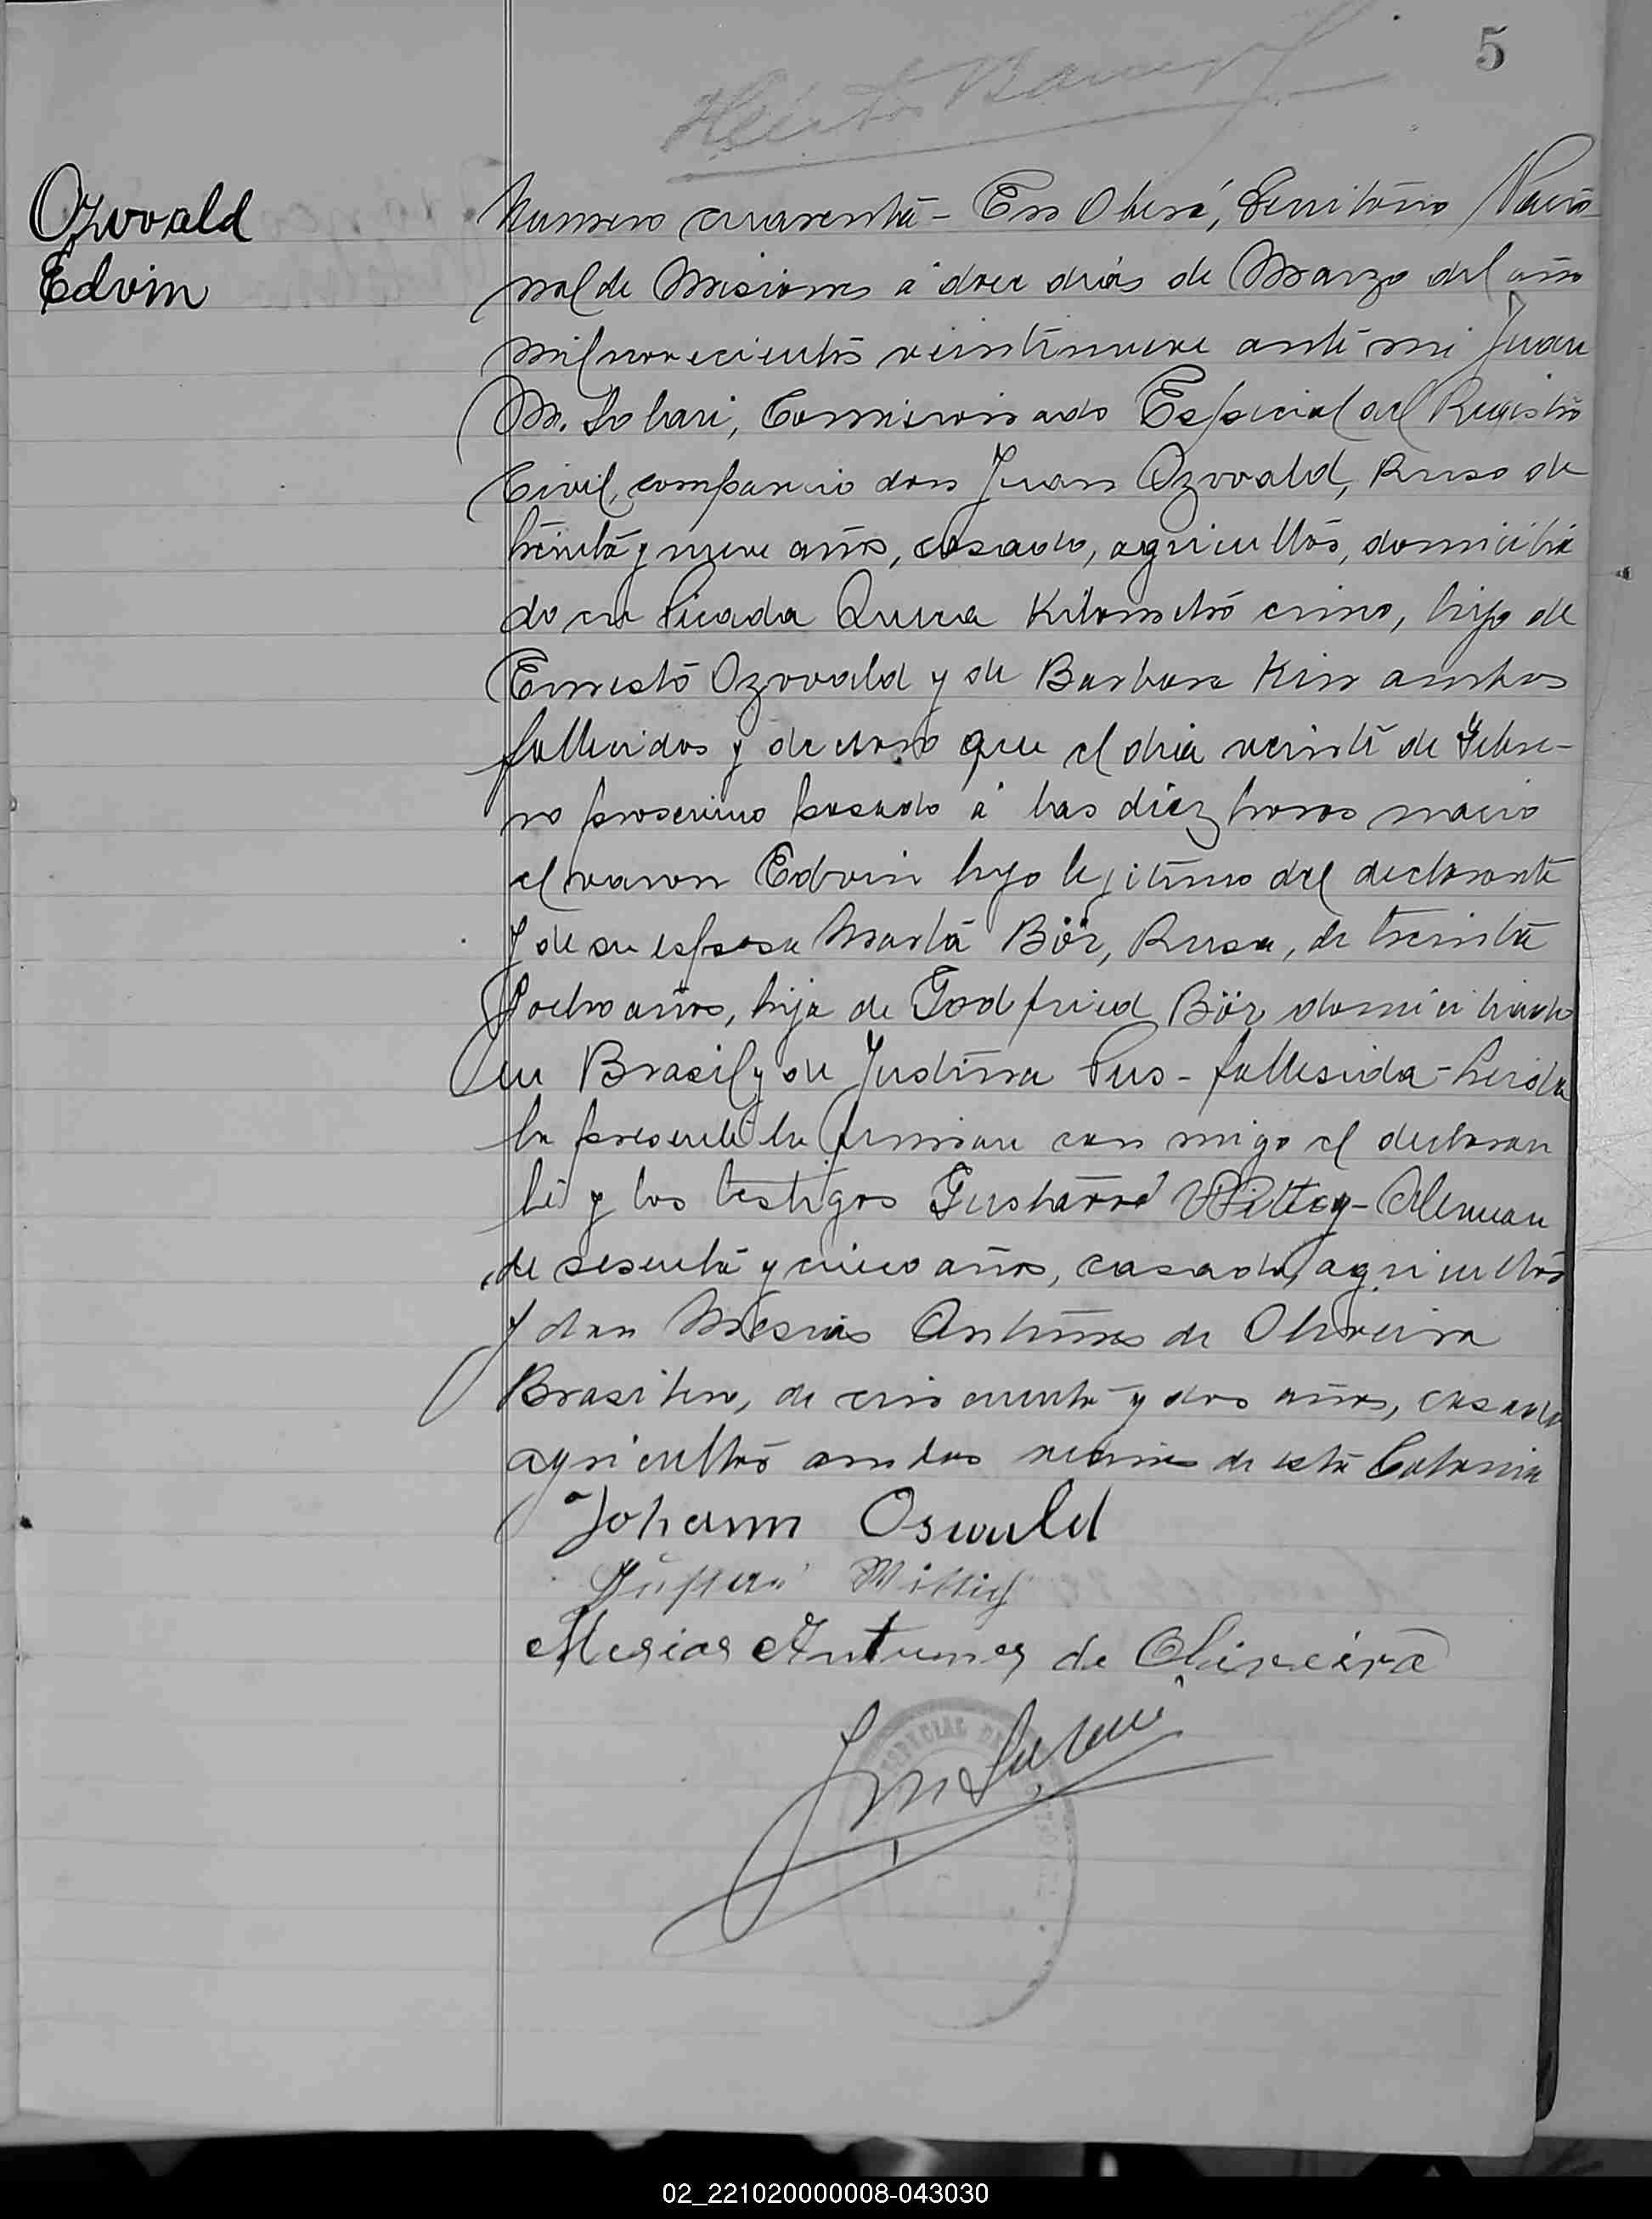 5
Ozwald
Edvin
Numero cuarenta - En Oberá, Territorio Nacio
nal de Misiones á doce dias de Marzo del año
mil novecientos veintinueve ante mi Juan
M. Lobari, Comisionado Especial del Registro
Civil, comparecio don Juan Ozwald, Ruso de
treinta y nueve años, casado, agricultor, domicilia
do en Picada Rusa Kilometro cinco, hijo de
Ernesto Ozwald y de Barbara Kin ambos
fallecidos y declaro que el dia veinte de Febre-
ro proximo pasado á las diez horas nacio
el varon Edvin hijo legitimo del declarante
y de su esposa Marta Bör, Rusa, de treinta
y ocho años, hija de Godfried Bör domiciliado
en Brasil y de Justina - fallesida - Leida
la presente la firman con migo el declaran
te y los testigos Gustavo Wittig - Aleman
de sesenta y cinco años, casado, agricultor
y don Mesias Antunes de Oliveira
Brasilero, de cincuenta y dos años, casado
agricultor ambos vecinos de esta Colonia
Johann Oswald
Gustav Wittig
Mesias Antunes de Oliveira
ESPECIAL DE
02_221020000008-043030